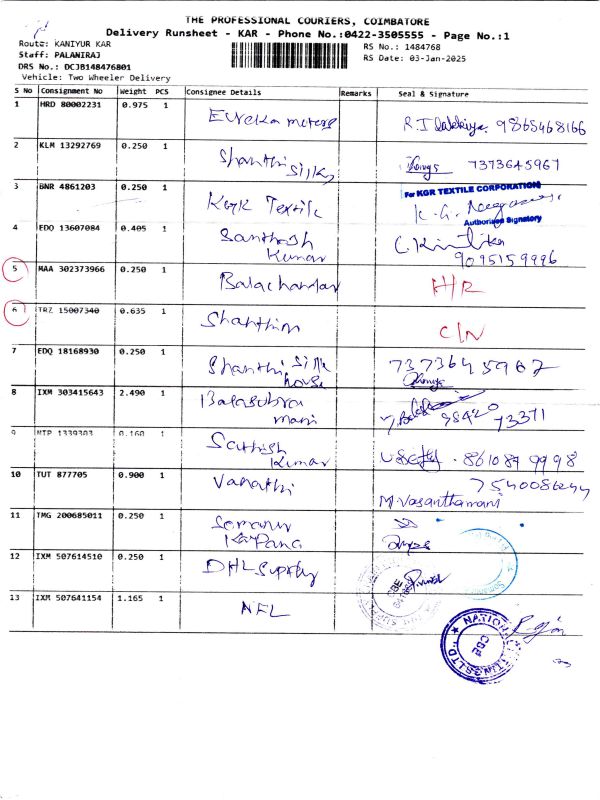 THE PROFESSIONAL COURIERS, COIMBATORE
Delivery Runsheet - KAR - Phone No.:0422-3505555 - Page No.:1
Route: KANIYUR KAR
RS No.: 1484768
Staff: PALANIRAJ
RS Date: 03-Jan-2025
DRS No.: DCJB148476801
Vehicle: Two Wheeler Delivery
S No Consignment No Weight PCS Consignee Details Remarks Seal & Signature
1 HRD 80002231 0.975 1 Eureka 9865468166
2 KLM 13292769 0.250 1 Shanthi Silks 7373645967
3 BNR 4861203 0.250 1 KGR Textile
For KGR TEXTILE CORPORATION
K.G.
Authorised Signatory
4 EDQ 13607084 0.405 1 Santhosh Kumar C. Kirthika
9095159996
5 MAA 302373966 0.250 1 Balachandar H/R
6 TRZ 15007340 0.635 1 C/N
7 EDQ 18168930 0.250 1 Shanthi Silk house 7373645967
8 IXM 303415643 2.490 1 Balasubra mani 98420 73371
9 NTP 1339303 0.160 1 Sathish Kumar 861089 9998
10 TUT 877705 0.900 1 Vanathi
M. Vasanthamani
11 TMG 200685011 0.250 1
12 IXM 507614510 0.250 1 DHL Supply
CBE
13 IXM 507641154 1.165 1 NFL
CBE